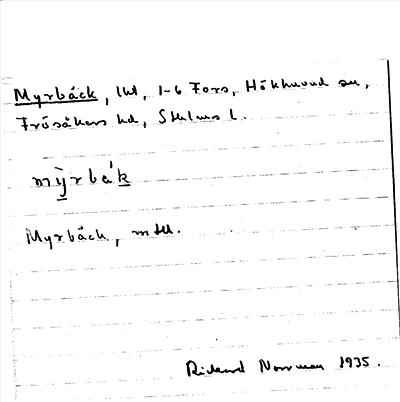 Myrbäck, lht, 1-6 Fors, Hökhuvud sn,
Frösåkers hd, Sthlms l.
mỳrbák
Myrbäck, mtl.
Rickard Norrman 1935.